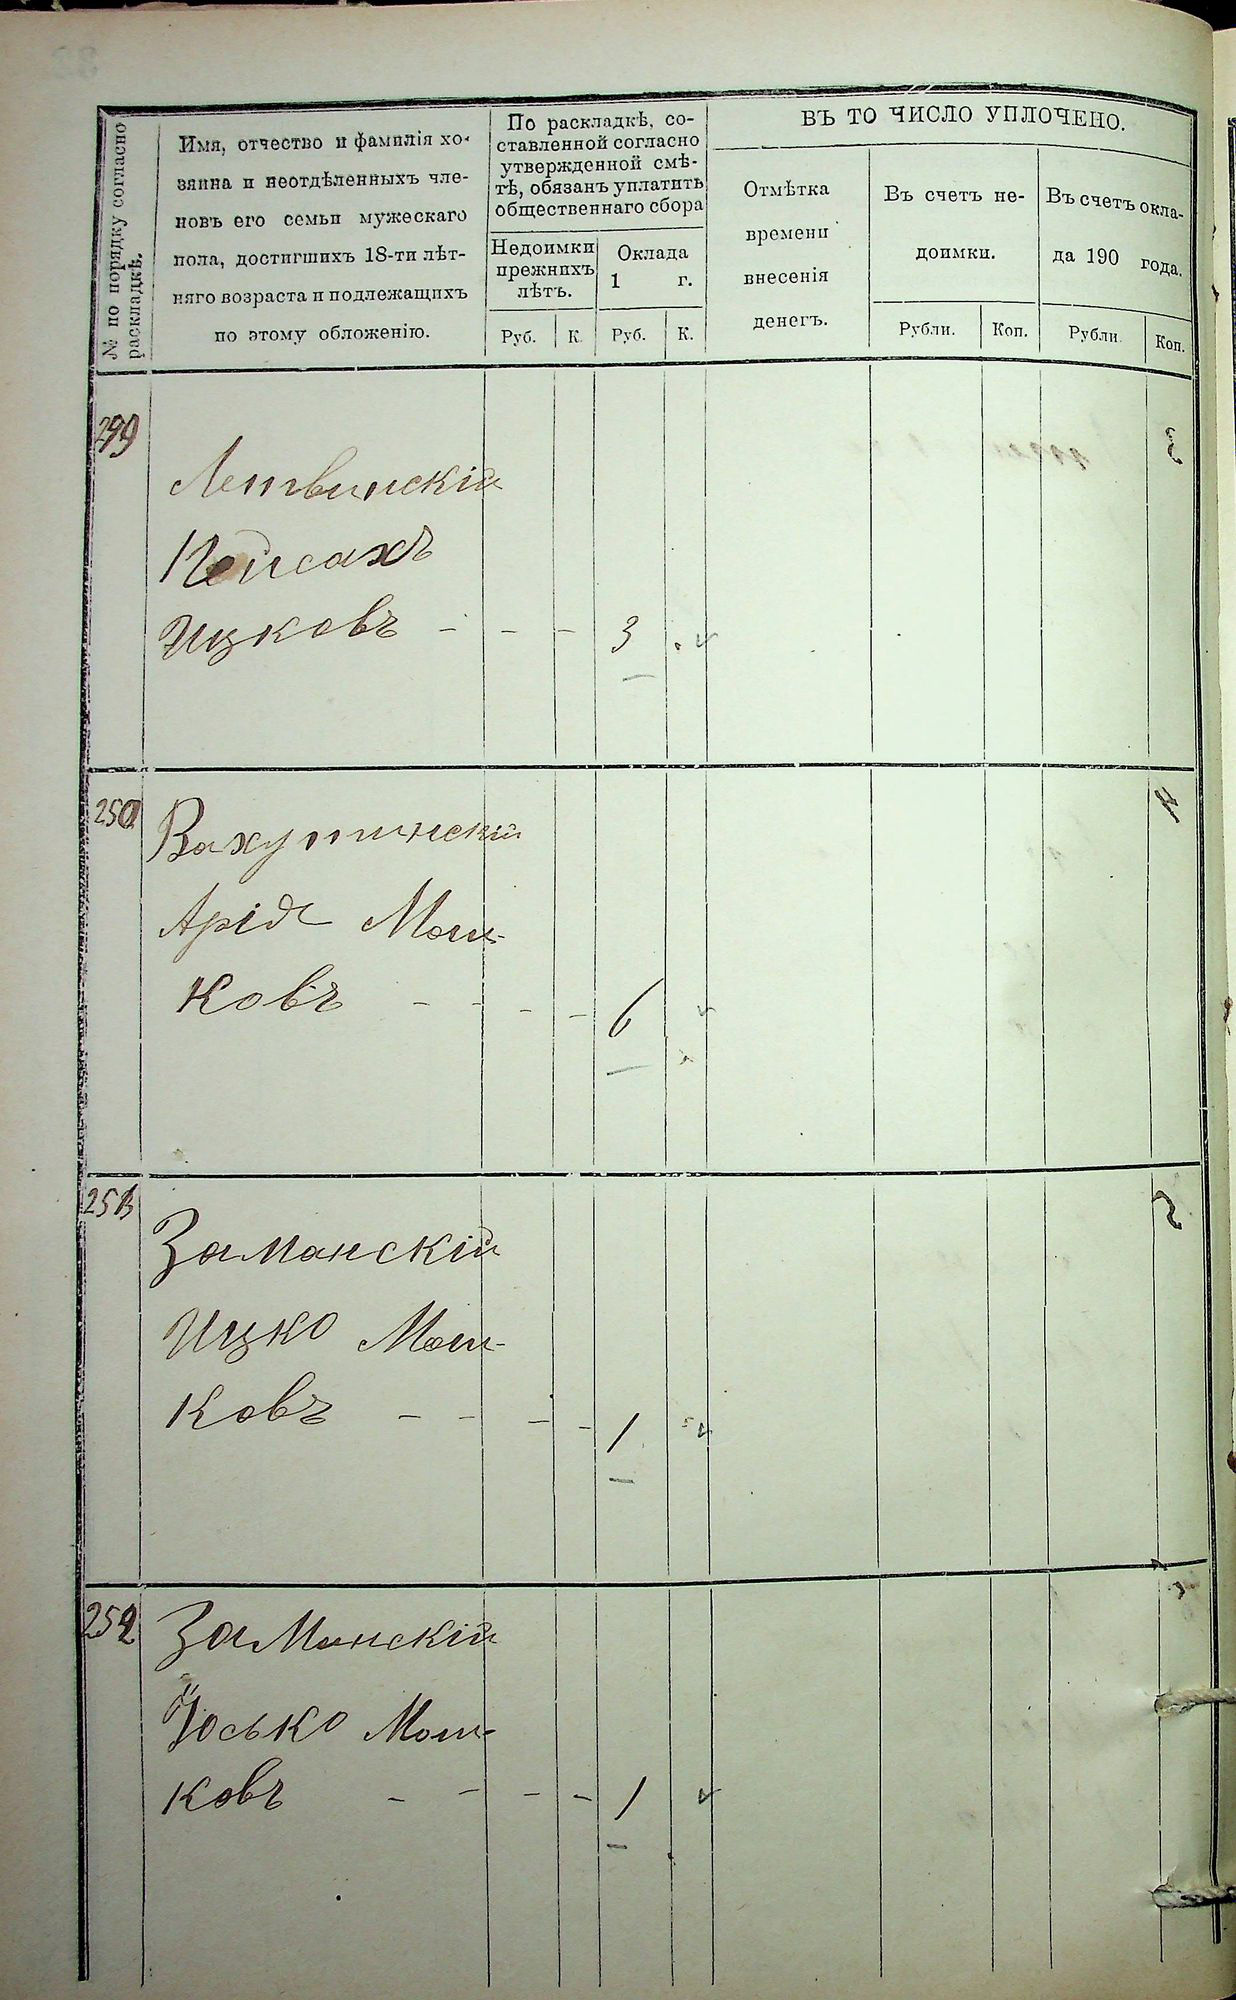 № по порядку согласно
раскладкѣ.
Имя, отчество и фамилія хо-
зяина и неотдѣленныхъ чле-
новъ его семьи мужескаго
пола, достигшихъ 18-ти лѣт-
няго возраста и подлежащихъ
по этому обложенію.
По раскладкѣ, со-
ставленной согласно
утвержденной смѣ-
тѣ, обязанъ уплатить
общественнаго сбора
Недоимки
прежнихъ
лѣтъ.
Руб. К.
Оклада
1 г.
Руб. К.
ВЪ ТО ЧИСЛО УПЛОЧЕНО.
Отмѣтка
времени
внесенія
денегъ.
Въ счетъ не-
доимки.
Рубли. Коп.
Въ счетъ окла-
да 190 года.
Рубли. Коп.
Летвинскій
Пейсахъ
Ицковъ - - - 3
250
Вахутинскій
Арія Мош-
ковъ - - - - 6
Заманскій
Ицко Мош-
ковъ - - - - 1
252
Заминскій
Йосько Мош-
ковъ - - - - 1